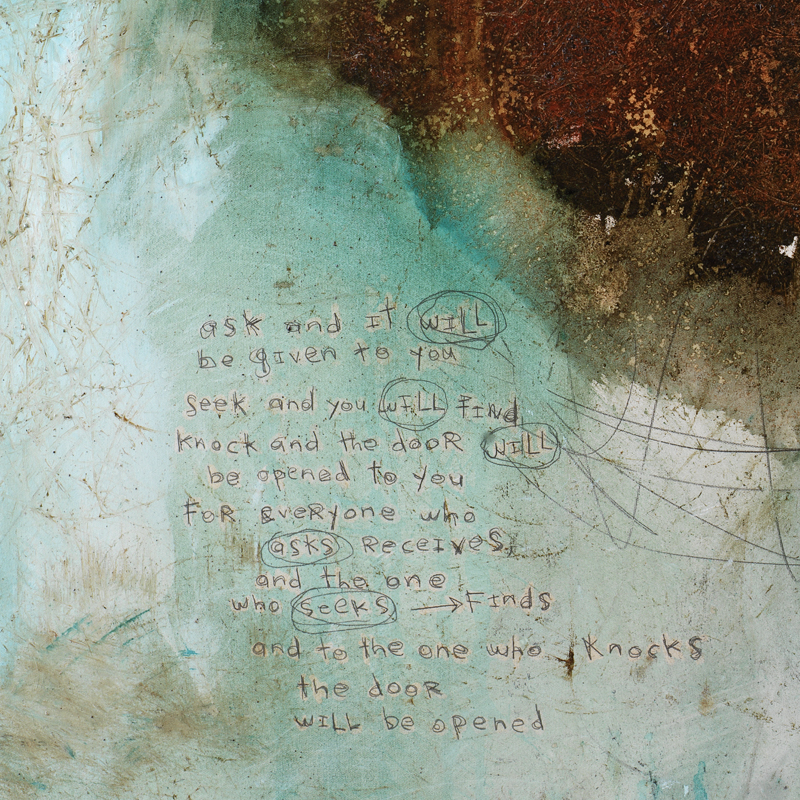 ask and it WILL
be given to you
seek and you WILL FINd
Knock and the dooR WILL
be opened to you
FoR EveRyone who
asks ReceIveS
and the one
who seeks → FInds
and to the one who Knocks
the dooR
WILL be opened